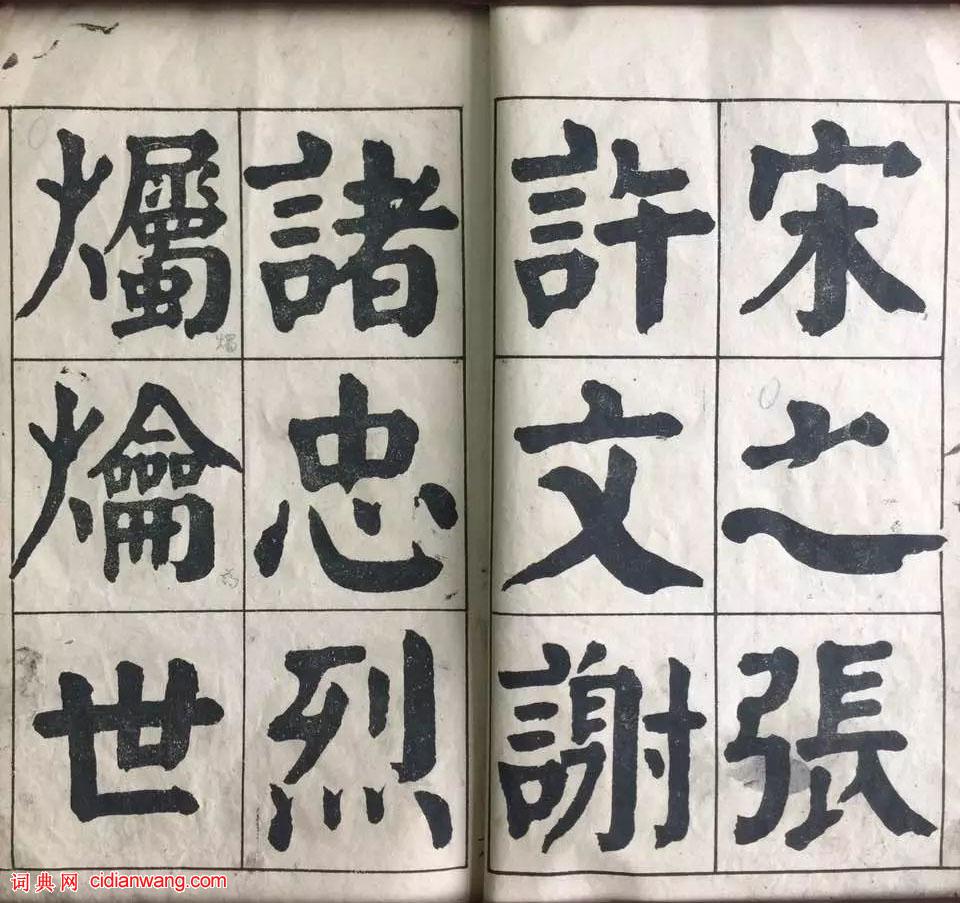 宋之張
許文謝
諸忠烈
爥爚世
燭
词典网 cidianwang.com